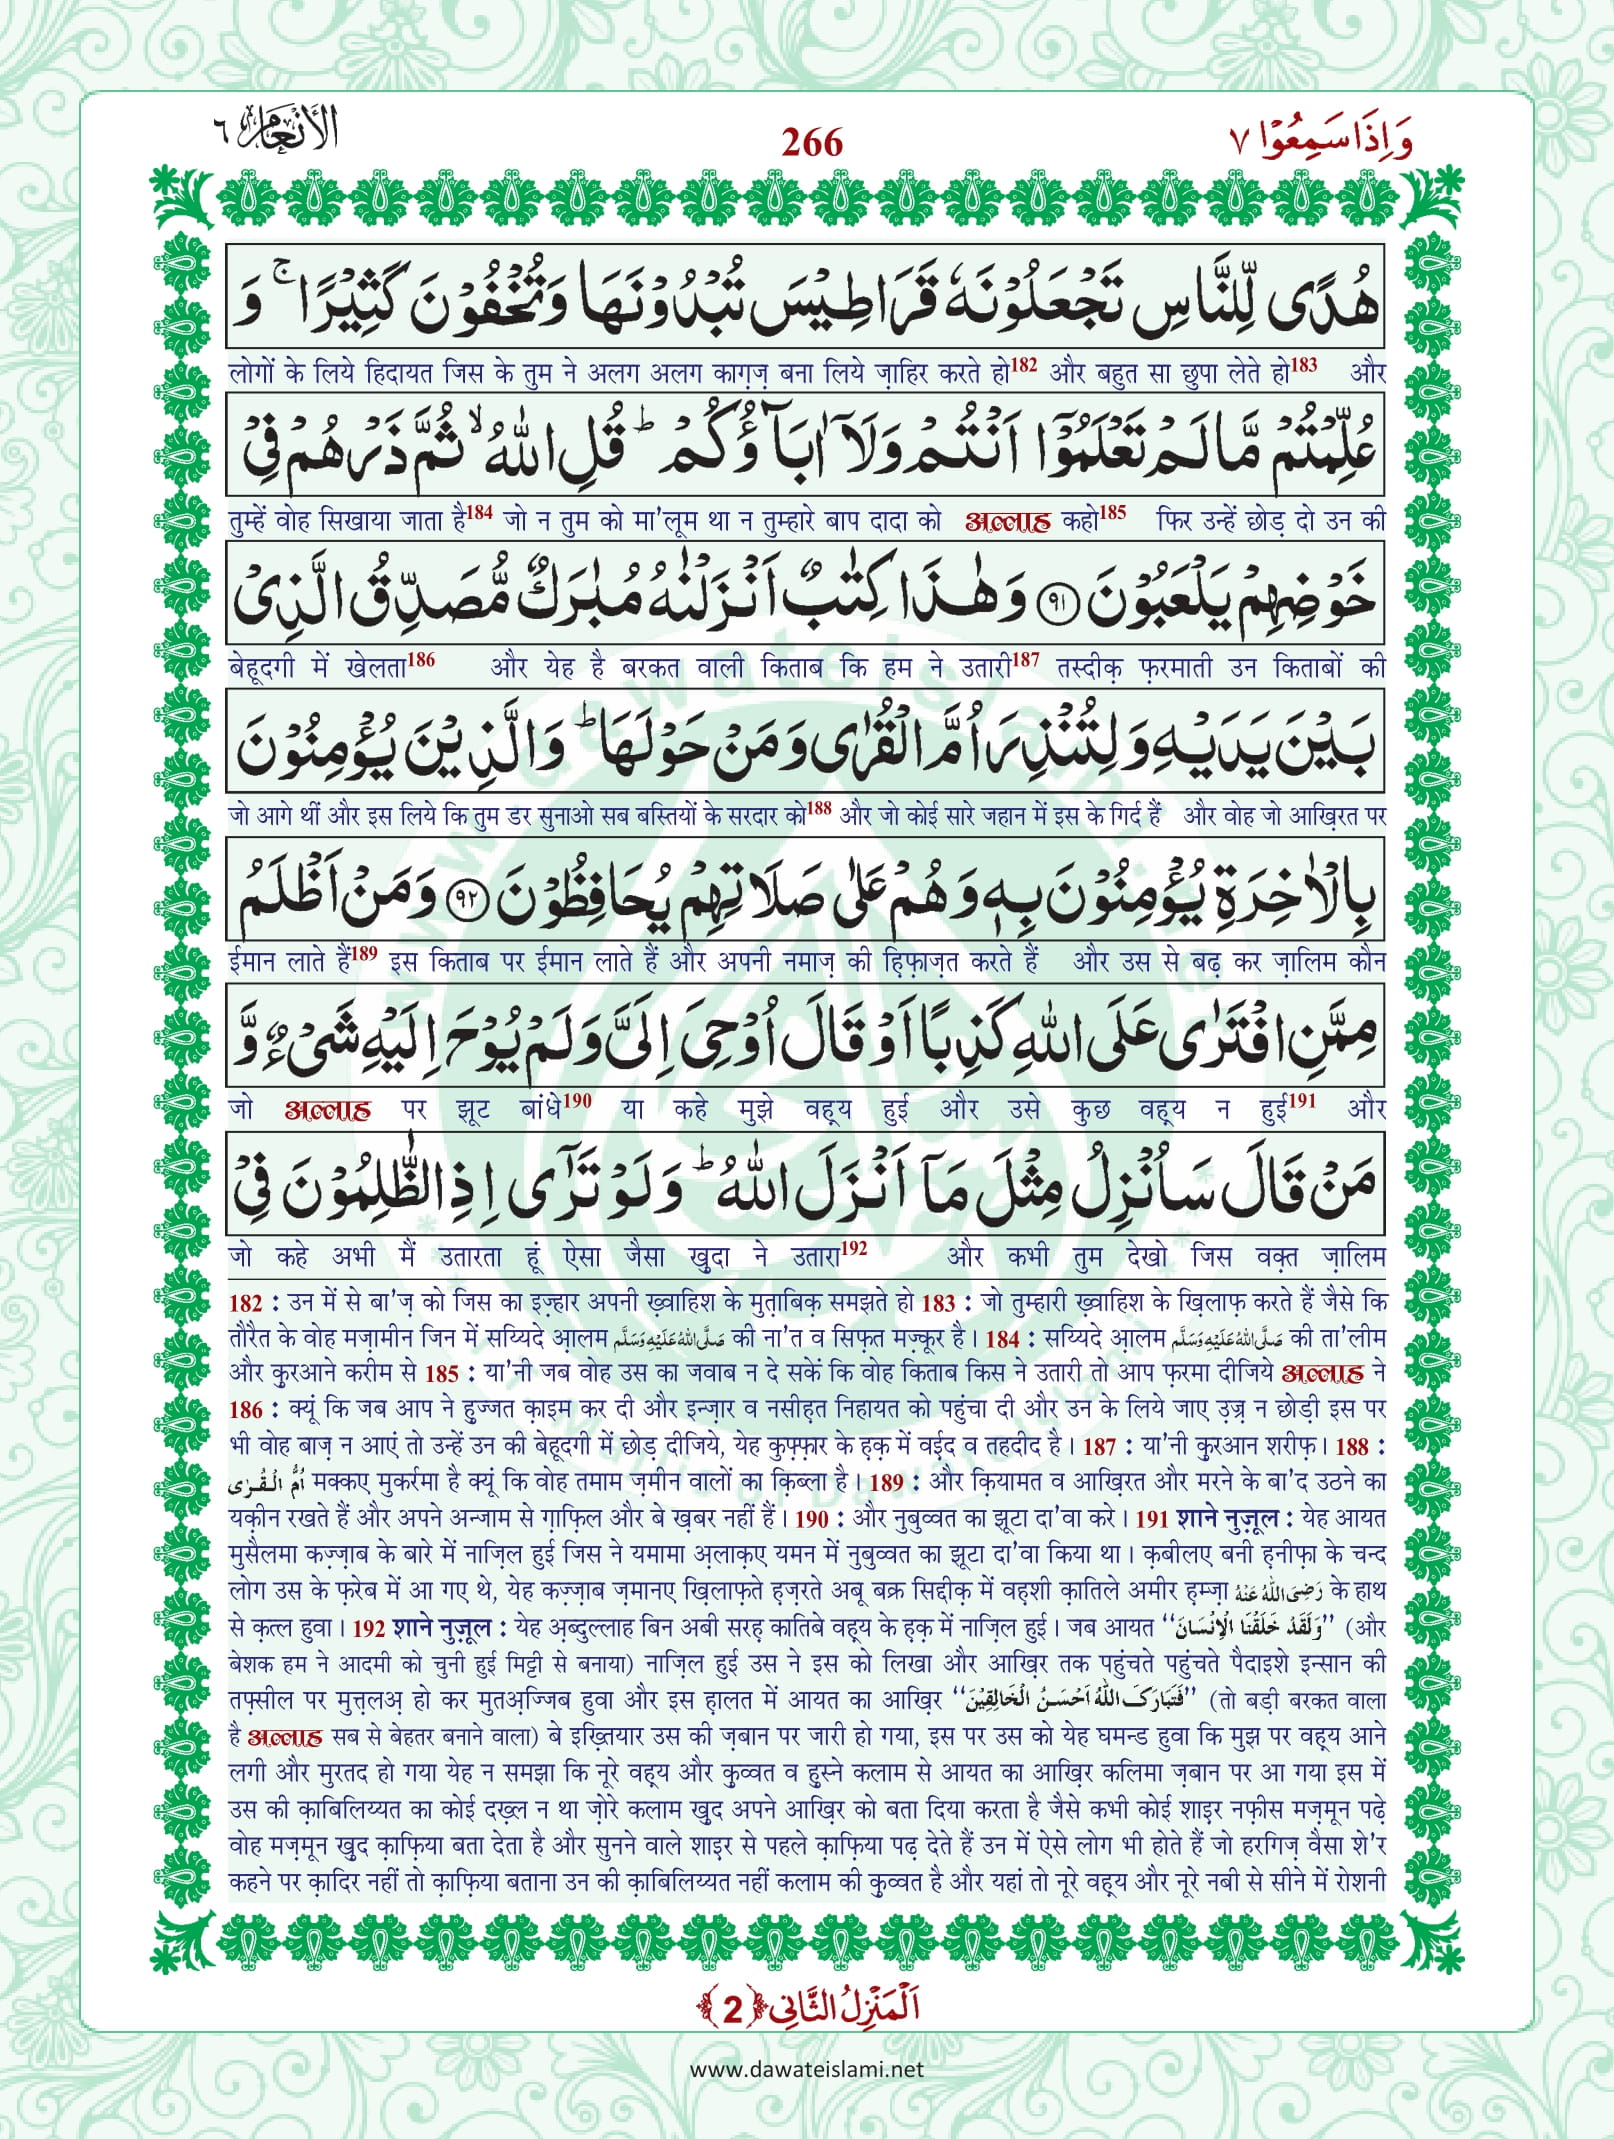 الأنعام ٦
266
وَاِذَا سَمِعُوْا ٧
هُدًى لِّلنَّاسِ تَجْعَلُوْنَهٗ قَرَاطِیْسَ تُبْدُوْنَهَا وَتُخْفُوْنَ كَثِیْرًا ۚ وَ
लोगों के लिये हिदायत जिस के तुम ने अलग अलग काग़ज़ बना लिये ज़ाहिर करते हो182 और बहुत सा छुपा लेते हो183 और
عُلِّمْتُمْ مَّا لَمْ تَعْلَمُوْۤا اَنْتُمْ وَلَاۤ اٰبَآؤُكُمْ ؕ قُلِ اللّٰهُ ۙ ثُمَّ ذَرْهُمْ فِیْ
तुम्हें वोह सिखाया जाता है184 जो न तुम को मा'लूम था न तुम्हारे बाप दादा को अल्लाह कहो185 फिर उन्हें छोड़ दो उन की
خَوْضِهِمْ یَلْعَبُوْنَ ﴿٩١﴾ وَهٰذَا كِتٰبٌ اَنْزَلْنٰهُ مُبٰرَكٌ مُّصَدِّقُ الَّذِیْ
बेहूदगी में खेलता186 और येह है बरकत वाली किताब कि हम ने उतारी187 तस्दीक़ फ़रमाती उन किताबों की
بَیْنَ یَدَیْهِ وَلِتُنْذِرَ اُمَّ الْقُرٰى وَمَنْ حَوْلَهَا ؕ وَالَّذِیْنَ یُؤْمِنُوْنَ
जो आगे थीं और इस लिये कि तुम डर सुनाओ सब बस्तियों के सरदार को188 और जो कोई सारे जहान में इस के गिर्द हैं और वोह जो आख़िरत पर
بِالْاٰخِرَةِ یُؤْمِنُوْنَ بِهٖ وَهُمْ عَلٰى صَلَاتِهِمْ یُحَافِظُوْنَ ﴿٩٢﴾ وَمَنْ اَظْلَمُ
ईमान लाते हैं189 इस किताब पर ईमान लाते हैं और अपनी नमाज़ की हि़फ़ाज़त करते हैं और उस से बढ़ कर ज़ालिम कौन
مِمَّنِ افْتَرٰى عَلَى اللّٰهِ كَذِبًا اَوْ قَالَ اُوْحِیَ اِلَیَّ وَلَمْ یُوْحَ اِلَیْهِ شَیْءٌ وَّ
जो अल्लाह पर झूट बांधे190 या कहे मुझे वह़्य हुई और उसे कुछ वह़्य न हुई191 और
مَنْ قَالَ سَاُنْزِلُ مِثْلَ مَاۤ اَنْزَلَ اللّٰهُ ؕ وَلَوْ تَرٰۤى اِذِ الظّٰلِمُوْنَ فِیْ
जो कहे अभी मैं उतारता हूं ऐसा जैसा खुदा ने उतारा192 और कभी तुम देखो जिस वक़्त ज़ालिम
182 : उन में से बा'ज़ को जिस का इज़्हार अपनी ख़्वाहिश के मुत़ाबिक़ समझते हो 183 : जो तुम्हारी ख़्वाहिश के ख़िलाफ़ करते हैं जैसे कि
तौरैत के वोह मज़ामीन जिन में सय्यिदे आ़लम صَلَّى اللهُ عَلَيْهِ وَسَلَّم की ना'त व सिफ़त मज़्कूर है। 184 : सय्यिदे आ़लम صَلَّى اللهُ عَلَيْهِ وَسَلَّم की ता'लीम
और कु़रआने करीम से 185 : या'नी जब वोह उस का जवाब न दे सकें कि वोह किताब किस ने उतारी तो आप फ़रमा दीजिये अल्लाह ने
186 : क्यूं कि जब आप ने हु़ज्जत क़ाइम कर दी और इन्ज़ार व नसीह़त निहायत को पहुंचा दी और उन के लिये जाए उ़ज़्र न छोड़ी इस पर
भी वोह बाज़ न आएं तो उन्हें उन की बेहूदगी में छोड़ दीजिये, येह कुफ़्फ़ार के ह़क़ में वई़द व तहदीद है। 187 : या'नी कु़रआन शरीफ़। 188 :
اُمُّ الْقُرٰى मक्कए मुकर्रमा है क्यूं कि वोह तमाम ज़मीन वालों का क़िब्ला है। 189 : और क़ियामत व आख़िरत और मरने के बा'द उठने का
यक़ीन रखते हैं और अपने अन्जाम से ग़ाफ़िल और बे ख़बर नहीं हैं। 190 : और नुबुव्वत का झूटा दा'वा करे। 191 शाने नुज़ूल : येह आयत
मुसैलमा कज़्ज़ाब के बारे में नाज़िल हुई जिस ने यमामा अ़लाक़ए यमन में नुबुव्वत का झूटा दा'वा किया था। क़बीलए बनी ह़नीफ़ा के चन्द
लोग उस के फ़रेब में आ गए थे, येह कज़्ज़ाब ज़मानए ख़िलाफ़ते ह़ज़रते अबू बक्र सिद्दीक़ में वह़शी क़ातिले अमीर ह़म्ज़ा رَضِىَ اللهُ عَنْهُ के हाथ
से क़त्ल हुवा। 192 शाने नुज़ूल : येह अ़ब्दुल्लाह बिन अबी सरह़ कातिबे वह़्य के ह़क़ में नाज़िल हुई। जब आयत “وَلَقَدْ خَلَقْنَا الْاِنْسَانَ” (और
बेशक हम ने आदमी को चुनी हुई मिट्टी से बनाया) नाज़िल हुई उस ने इस को लिखा और आख़िर तक पहुंचते पहुंचते पैदाइशे इन्सान की
तफ़्सील पर मुत्तलअ़ हो कर मुतअ़ज्जिब हुवा और इस ह़ालत में आयत का आख़िर “فَتَبَارَكَ اللهُ اَحْسَنُ الْخَالِقِيْنَ” (तो बड़ी बरकत वाला
है अल्लाह सब से बेहतर बनाने वाला) बे इख़्तियार उस की ज़बान पर जारी हो गया, इस पर उस को येह घमन्ड हुवा कि मुझ पर वह़्य आने
लगी और मुरतद हो गया येह न समझा कि नूरे वह़्य और कु़व्वत व हु़स्ने कलाम से आयत का आख़िर कलिमा ज़बान पर आ गया इस में
उस की क़ाबिलिय्यत का कोई दख़्ल न था ज़ोरे कलाम खु़द अपने आख़िर को बता दिया करता है जैसे कभी कोई शाइ़र नफ़ीस मज़मून पढ़े
वोह मज़मून खु़द क़ाफ़िया बता देता है और सुनने वाले शाइ़र से पहले क़ाफ़िया पढ़ देते हैं उन में ऐसे लोग भी होते हैं जो हरगिज़ वैसा शे'र
कहने पर क़ादिर नहीं तो क़ाफ़िया बताना उन की क़ाबिलिय्यत नहीं कलाम की कु़व्वत है और यहां तो नूरे वह़्य और नूरे नबी से सीने में रोशनी
اَلْمَنْزِلُ الثَّانِي ﴿2﴾
www.dawateislami.net